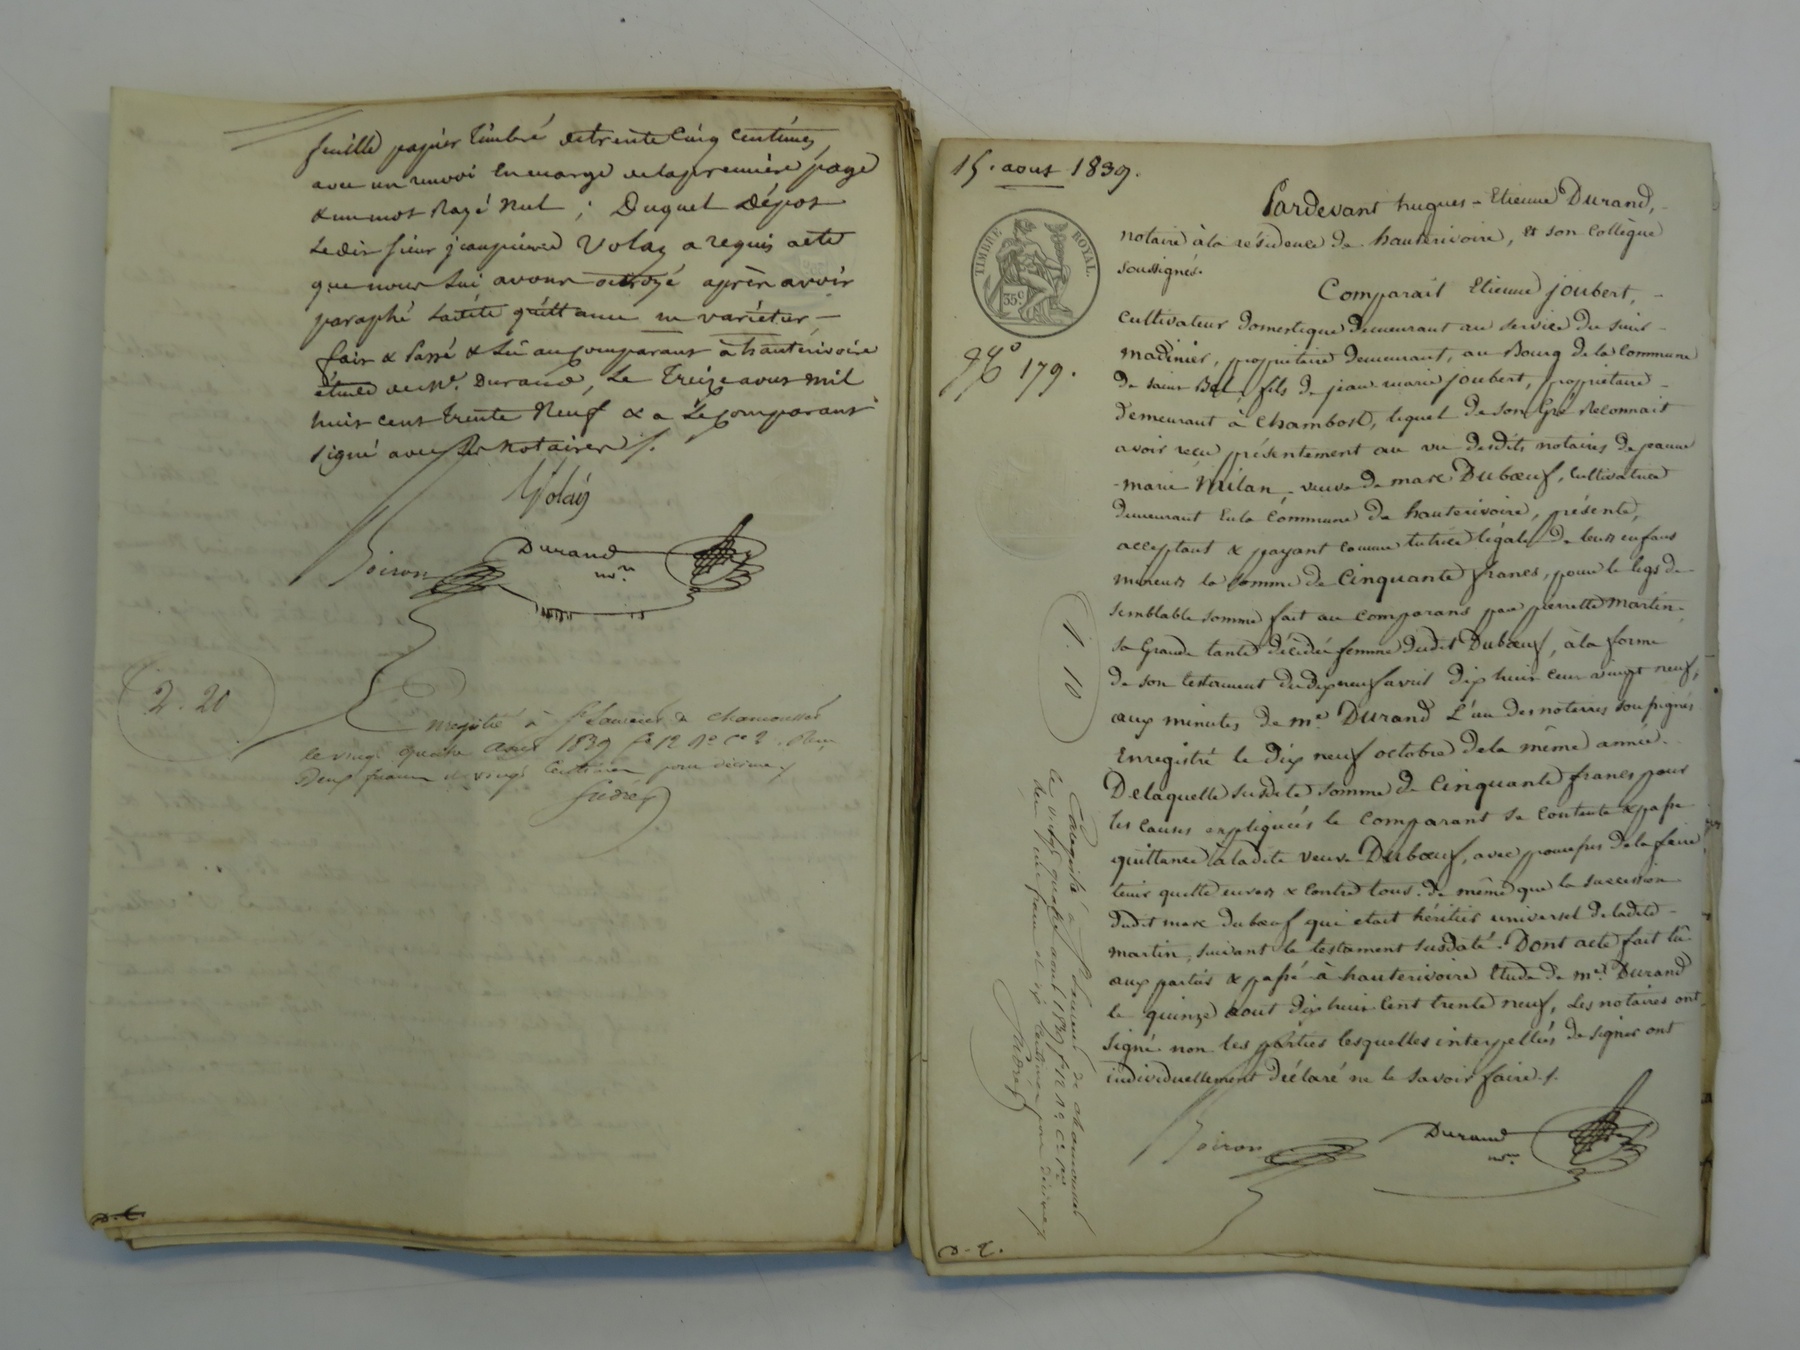 feuille papier timbré de trente cinq centimes,
avec un renvoi en marge de la première page
& un mot rayé nul ; Duquel Dépos
Ledit sieur jean pierre Volay a requis acte
que nous lui avons octroyé après avoir
paraphé ladite quittance ne varietur —
fait & Passé & Lu au comparant à hauterivoire
étude de Me. Durand, Le treize aout mil
huit cent trente Neuf & a Le comparant
signé avec les notaires /.
Volay
Boiron Durand
nre.
2. 20
Enregistré à St Laurent de chamousset
le vingt quatre aout 1839 fo 12 Ro Ce 2. Reçu
Deux francs & vingt centimes pour décime
D. E.
15. aout 1839.
Pardevant hugues - Etienne Durand, -
notaire à la résidence de hauterivoire, et son Collègue
soussignés.
TIMBRE ROYAL.
35c
Comparait Etienne joubert, -
Cultivateur domestique demeurant au service du sieur -
No 179.
madinier, propriétaire demeurant, au Bourg de la commune
de saint Bel, fils de jean-marie joubert, propriétaire -
demeurant à Chambost, lequel de son Gré Reconnait
avoir reçu présentement au vu desdits notaires de jeanne
-marie Milan, veuve de marc Dubœuf, Cultivatrice
demeurant En la Commune de hauterivoire, présente,
acceptant & payant comme tutrice légale de leurs enfans
mineurs la somme de Cinquante francs, pour le legs de
semblable somme fait au comparans par pierrette Martin,
sa Grande tante décédée femme dudit Dubœuf, à la forme
1. 10
de son testament du dix neuf avril dix huit cent vingt neuf,
aux minutes de me Durand L'un des noterres soussignés
Enregistré le dix neuf octobre de la même année.
De laquelle susdite somme de Cinquante francs pour
les causes expliquées le comparant se contente & passe
quittance à ladite veuve Dubœuf, avec promesses de la faire
tenir quitte envers & Contre tous. de même que la succession
dudit marc dubœuf qui était héritier universel de ladite -
martin, suivant le testament susdaté. Dont acte fait lû
aux parties & passé à hauterivoire Etude de me. Durand
le quinze aout dix huit Cent trente neuf, Les notaires ont
signé non les parties lesquelles interpellées de signer ont
individuellement déclaré ne le savoir faire. /.
Boiron Durand
nre.
Enregistré à St Laurent de chamousset
le vingt quatre aout 1839 fo 12 Ro Ce
un franc et dix centimes pour décime
D. E.